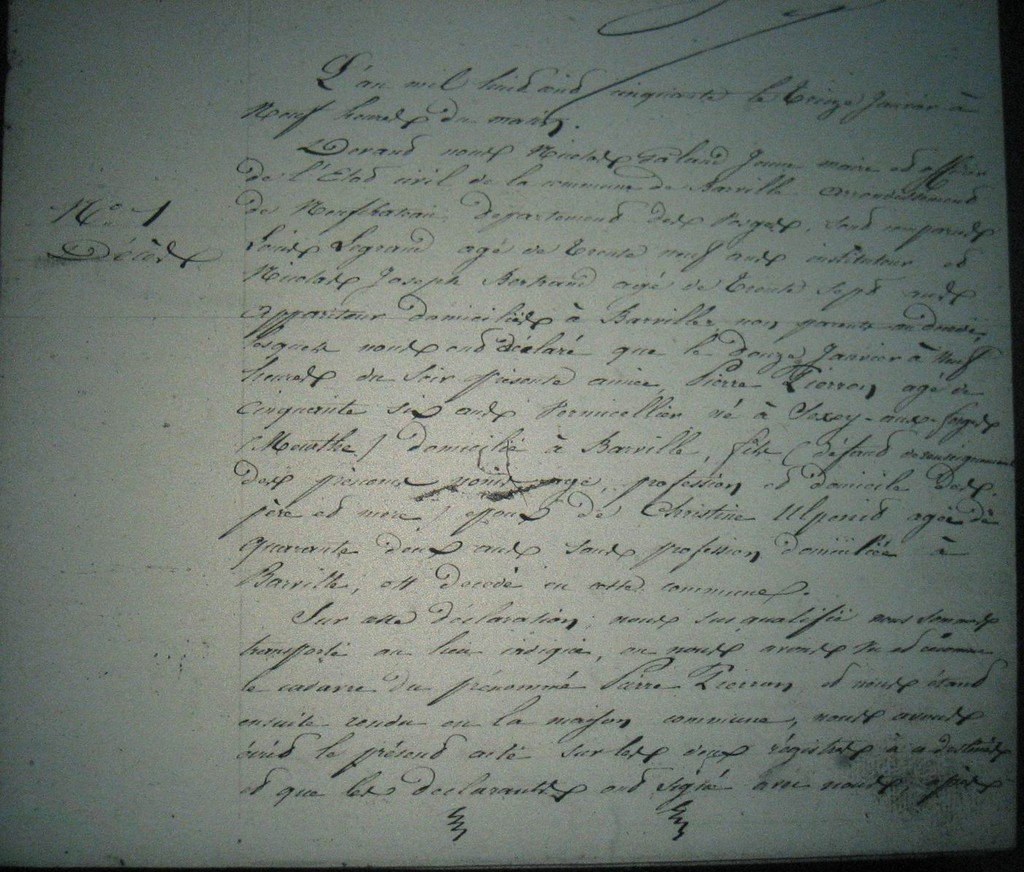 L'an mil huit cent cinquante le treize Janvier à
Neuf heures du matin.
Devant nous Nicolas Galand Jeune maire et officier
de l'Etat civil de la commune de Barville arrondissement
de Neufchateau département des Vosges, sont comparus
N° 1
Décès
Louis Legrand agé de trente neuf ans instituteur et
Nicolas Joseph Bertrand agé de trente sept ans
appariteur domiciliés à Barville, non parents au décédé,
lesquels nous ont déclaré que le douze Janvier à neuf
heures du soir présente année, Pierre Pierron agé de
Cinquante six ans Vermicellier né à Sexey-aux-forges
(Meurthe) domicilié à Barville, fils (défaut de renseignements
des prénoms noms age, profession et domicile des
père et mère) époux de Christine Ulpond agée de
quarante deux ans sans profession domiciliée à
Barville, est decedé en cette commune.
Sur cette déclaration, nous sus qualifié nous sommes
transporté au lieu indiqué, ou nous avons vu et reconnu
le cadavre du prénommé Pierre Pierron et nous étant
ensuite rendu en la maison commune, nous avons
écrit le présent acte sur les deux régistres à ce destinés
et que les declarants ont signé avec nous, après